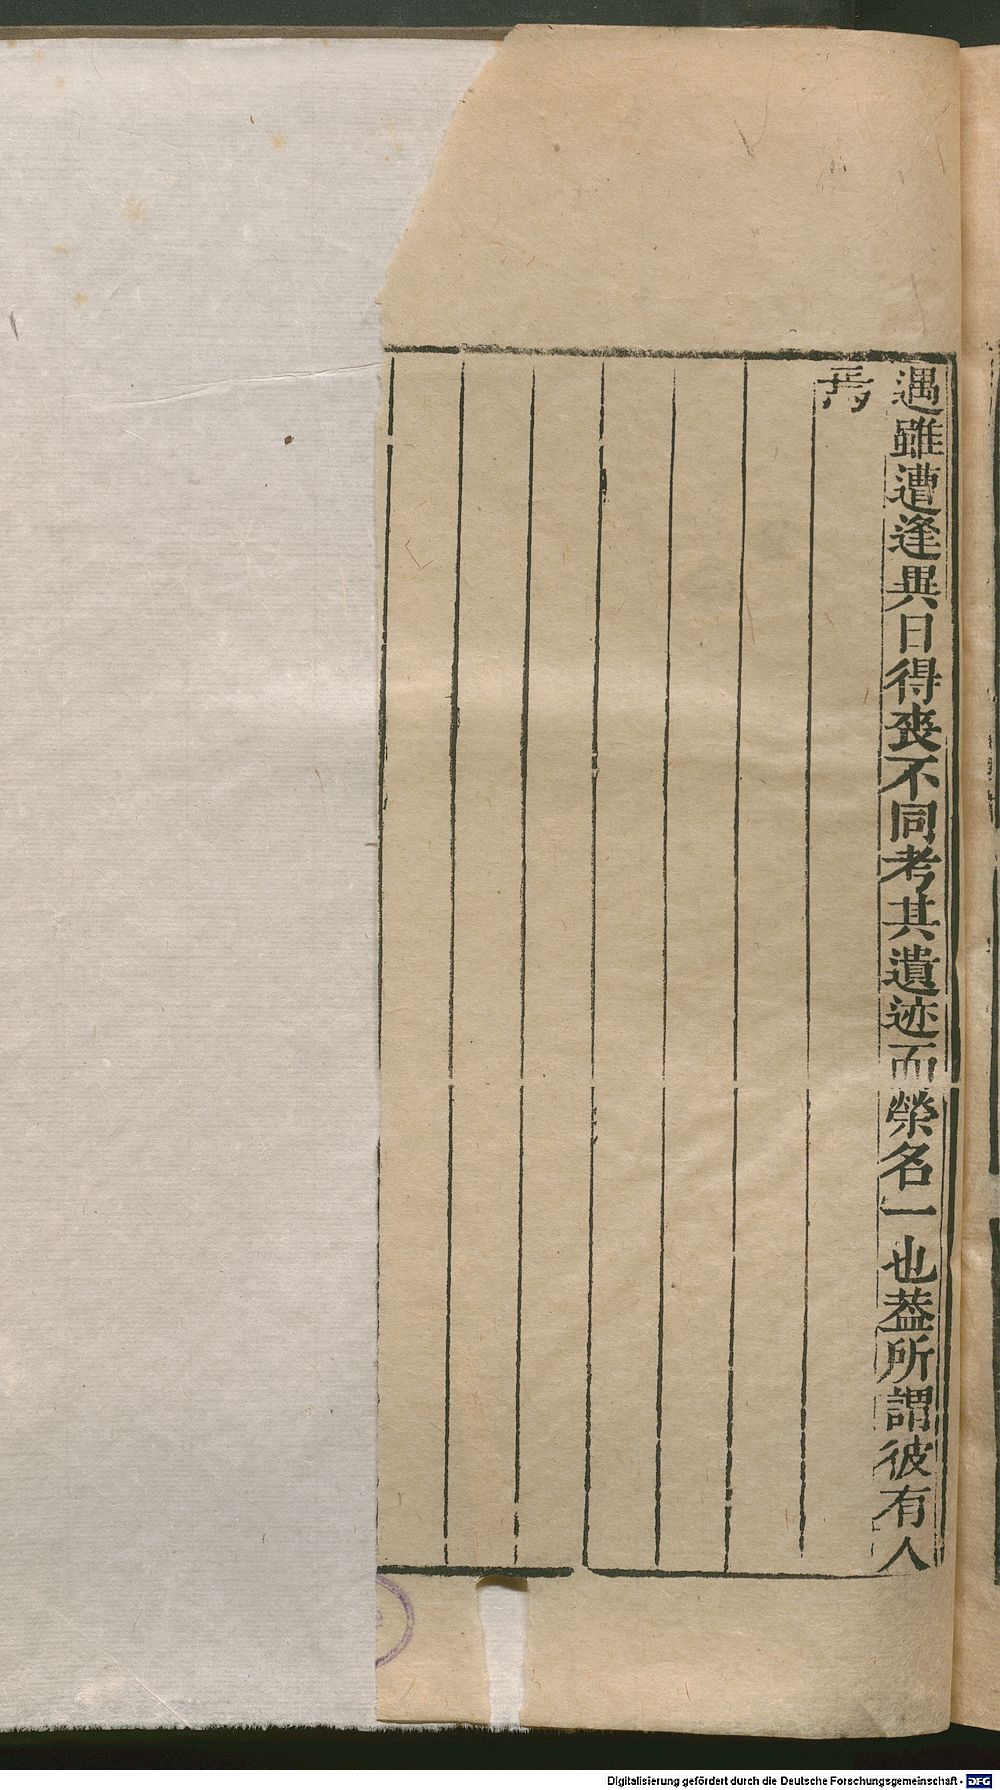 遇雖遭逢異日得喪不同考其遺迹而榮名一也葢所謂彼有人
焉
Digitalisierung gefördert durch die Deutsche Forschungsgemeinschaft - DFG